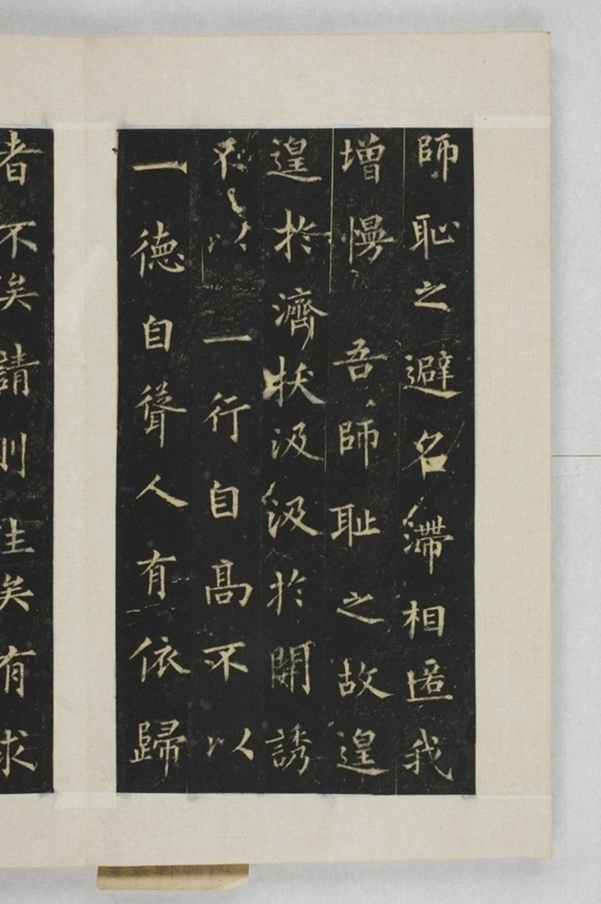 師恥之避名滯相匿我
增慢　吾師耻之故遑
遑於濟拔汲汲於開誘
不以一行自髙不以
一德自聳人有依歸
者不俟請則往矣有求